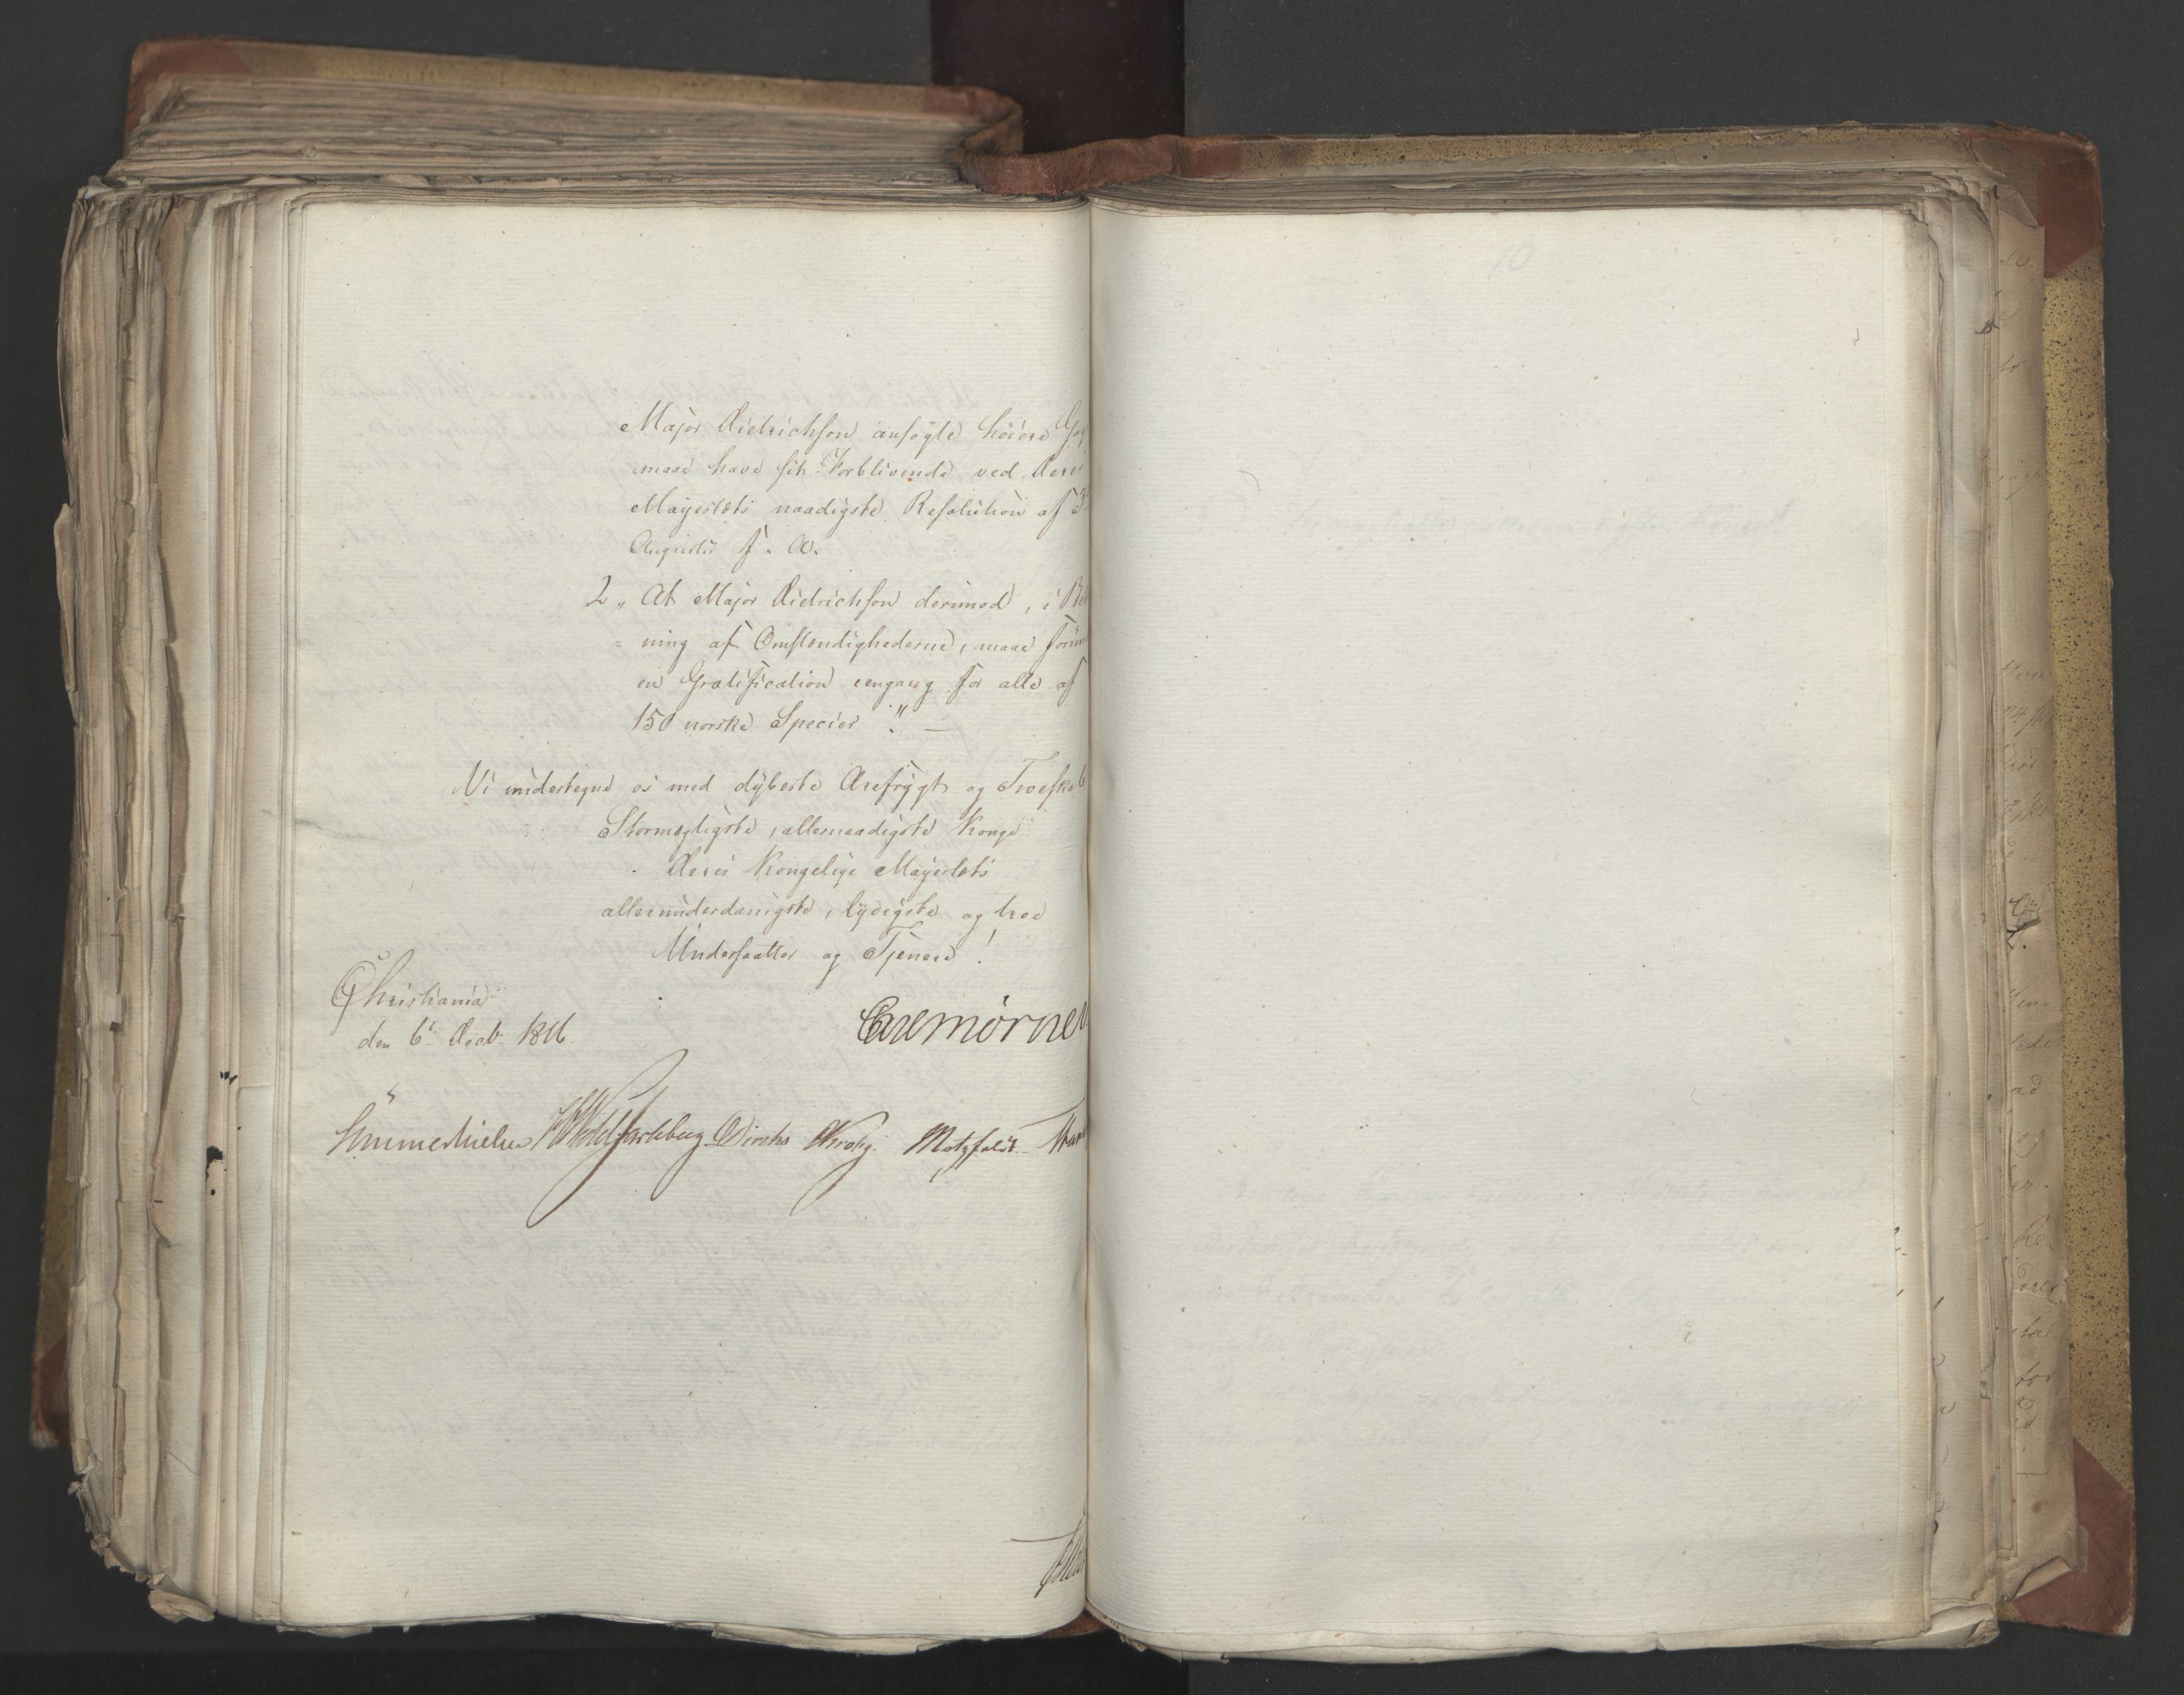 Major Didrichson ansøgte høiere
maae have sit Forblivende ved Deres
Mayestæts naadigste Resolution af
Augusti f. A.
2, At Major Didrichson derimod, i
ning af Omstændighederne, maae
en Gratification eengang for alle af
150 norske Species". —
Vi undertegne os med dybeste Ærefrygt og Troeskab
Stormægtigste, allernaadigste Konge
Deres Kongelige Mayestæts
allerunderdanigste, lydigste og troe
Undersaatter og Tjenere!
Christiania
den 6t Decb. 1816.
Carl Mørner
Sommerhielm Wedel Jarlsberg Diriks Krohg. Motzfeldt